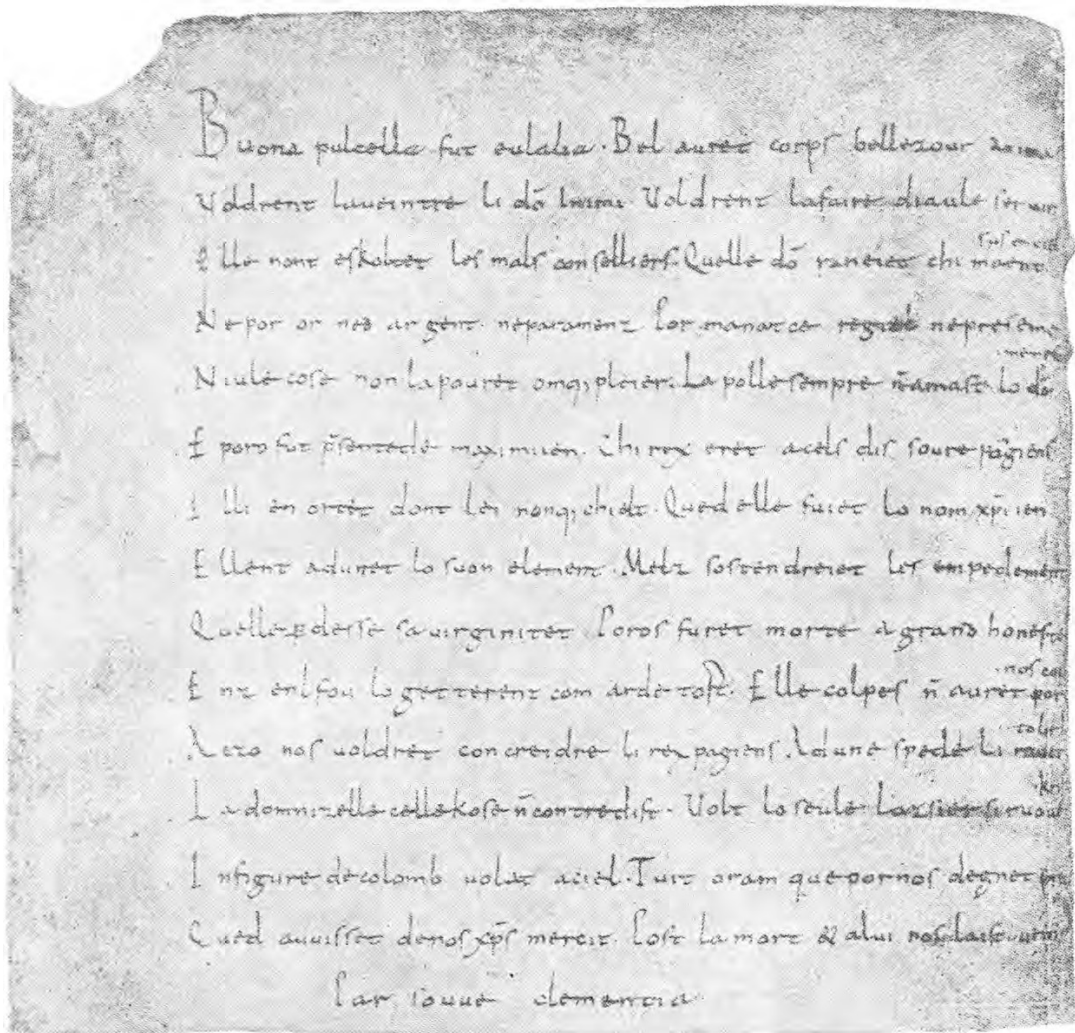 Buona pulcella fut eulalia. Bel auret corps bellezour anima
Voldrent laueintre li dō Inimi. Voldrent lafaire diaule seruir
sus en ciel
Elle nont eskoltet les mals conselliers. Quelle dō raneiet chi maent
Ne por or ned argent. neparamenz Por manatce regiel nepreiement
Niule cose non lapouret omqi pleier. La polle sempre n̄ amast lo dō
E poro fut p̄sentede maximiien. Chi rex eret acels dis soure pagiens
Illi en ortet dont lei nonqi chielt. Qued elle fuiet lo nom xp̄iien
Ellent adunet lo suon element. Melz sostendreiet les empedementz
Quelle ꝑdesse sauirginitet. Poros furet morte a grand honestet
Enz enl fou lo getterent com arde tost. Elle colpes n̄ auret por
nos coist
Aezo nos uoldret concreidre li rex pagiens. Ad une spede li
tolir
La domnizelle cellekose n̄ contredist. Volt lo seule lazsier si ruouet
Infigure de colomb uolat aciel. Tuit oram que por nos degnet
Qued auuisset denos xp̄s mercit. Post la mort & alui nos laist uenir
Par souue clementia